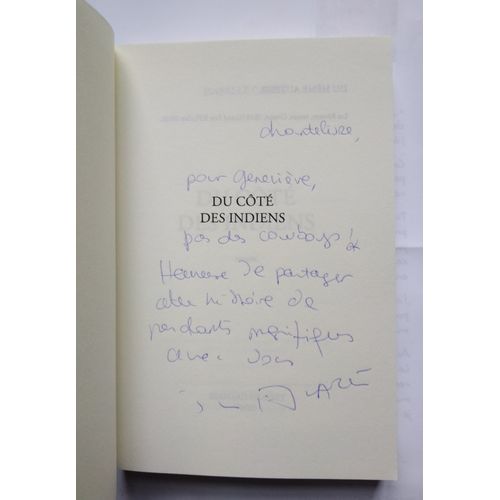 chantelivre,
pour Geneviève,
DU CÔTÉ
DES INDIENS
pas des cowboys!
Heureuse de partager
cette histoire de
perdants magnifiques
avec vous